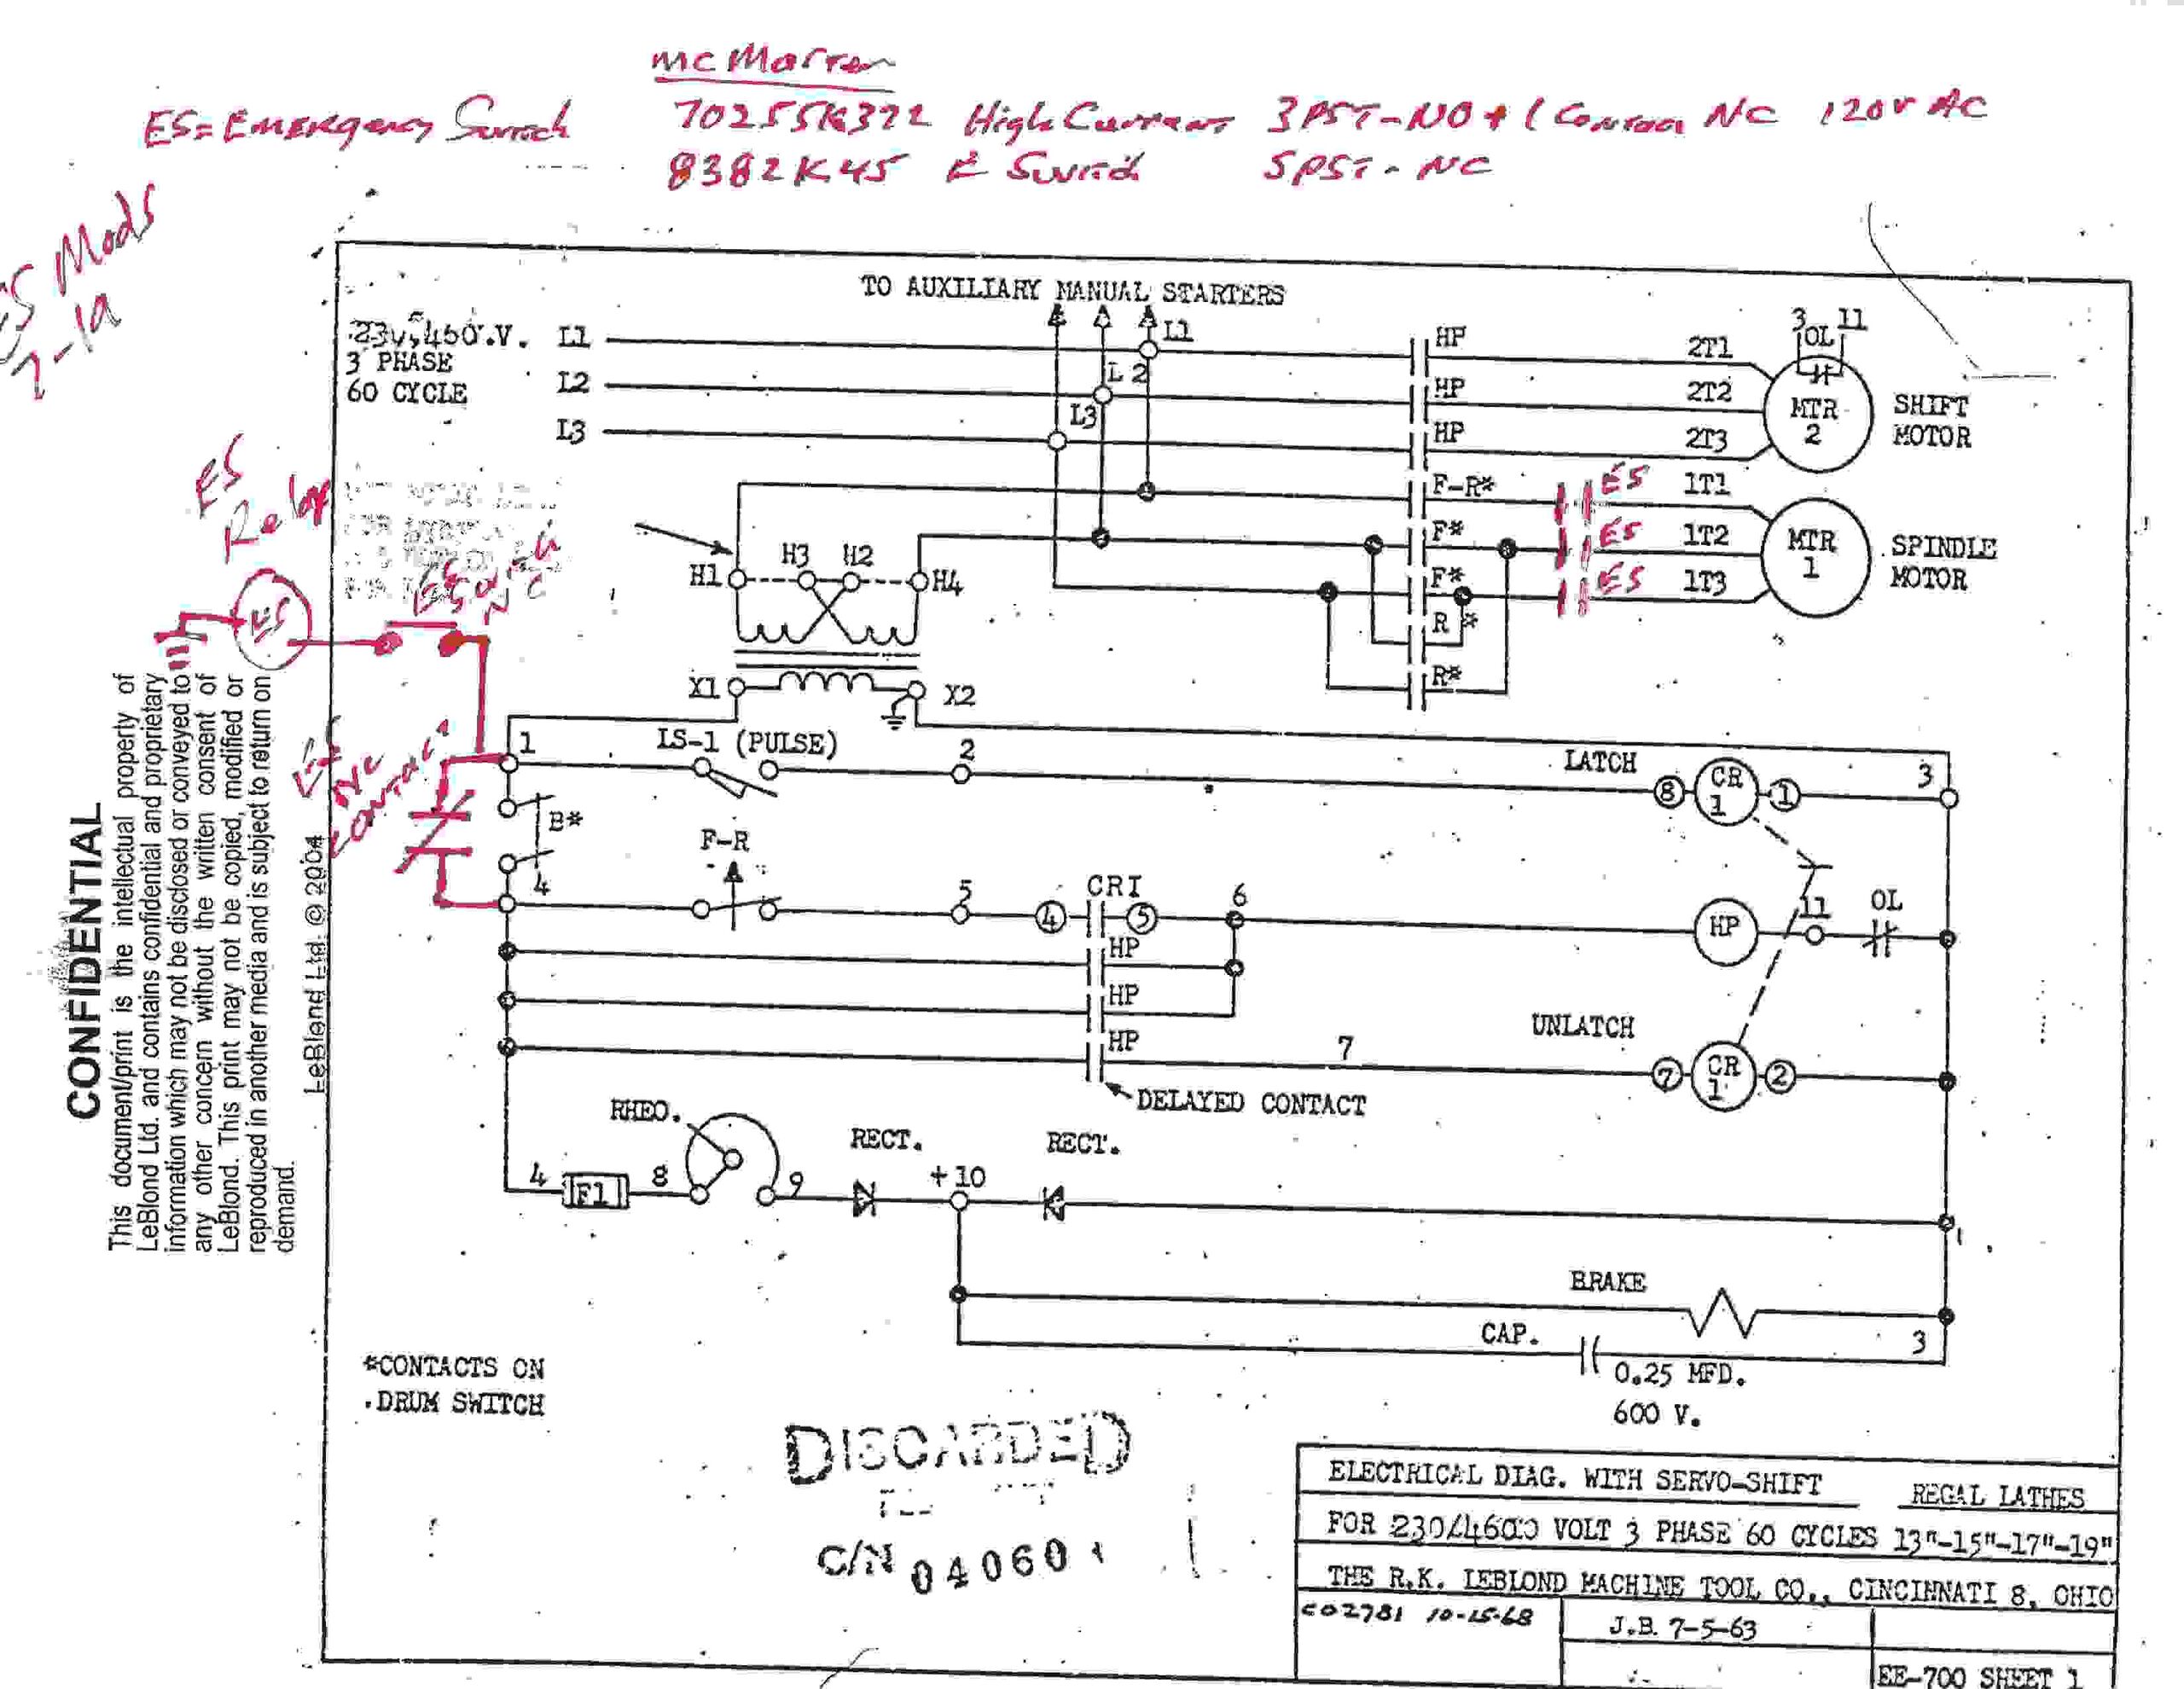 mcMaster
ES=EMERgency Switch 70255K322 High Current 3PST-NO + 1 Contact NC 120V AC
8382K45 E Switch SPST-NC
ES Mods
7-19
TO AUXILIARY MANUAL STARTERS
230,460.V. L1 L1 HP 2T1 3 OL 11
3 PHASE
60 CYCLE L2 L2 HP 2T2 MTR 2 SHIFT MOTOR
L3 L3 HP 2T3
ES Relay
F-R* ES 1T1
F* ES 1T2 MTR 1 SPINDLE MOTOR
F* ES 1T3
R*
R*
H1 H3 H2 H4
ES
NC
X1 X2
1 LS-1 (PULSE) 2 LATCH 8 CR 1 1 3
ES NC contact
B*
F-R
4 5 4 CR1 5 6 HP 11 OL
HP
HP
HP 7 UNLATCH 7 CR 1 2
DELAYED CONTACT
RHEO. RECT. RECT.
4 F1 8 9 +10
BRAKE
CAP. 3
0.25 MFD.
600 V.
*CONTACTS ON
.DRUM SWITCH
DISCARDED
C/N 04060
CONFIDENTIAL
This document/print is the intellectual property of
LeBlond Ltd. and contains confidential and proprietary
information which may not be disclosed or conveyed to
any other concern without the written consent of
LeBlond. This print may not be copied, modified or
reproduced in another media and is subject to return on
demand.
LeBlond Ltd. © 2004
ELECTRICAL DIAG. WITH SERVO-SHIFT REGAL LATHES
FOR 230/460 VOLT 3 PHASE 60 CYCLES 13"-15"-17"-19"
THE R.K. LEBLOND MACHINE TOOL CO., CINCINNATI 8, OHIO
CO2781 10-15-68 J.B. 7-5-63
EE-700 SHEET 1